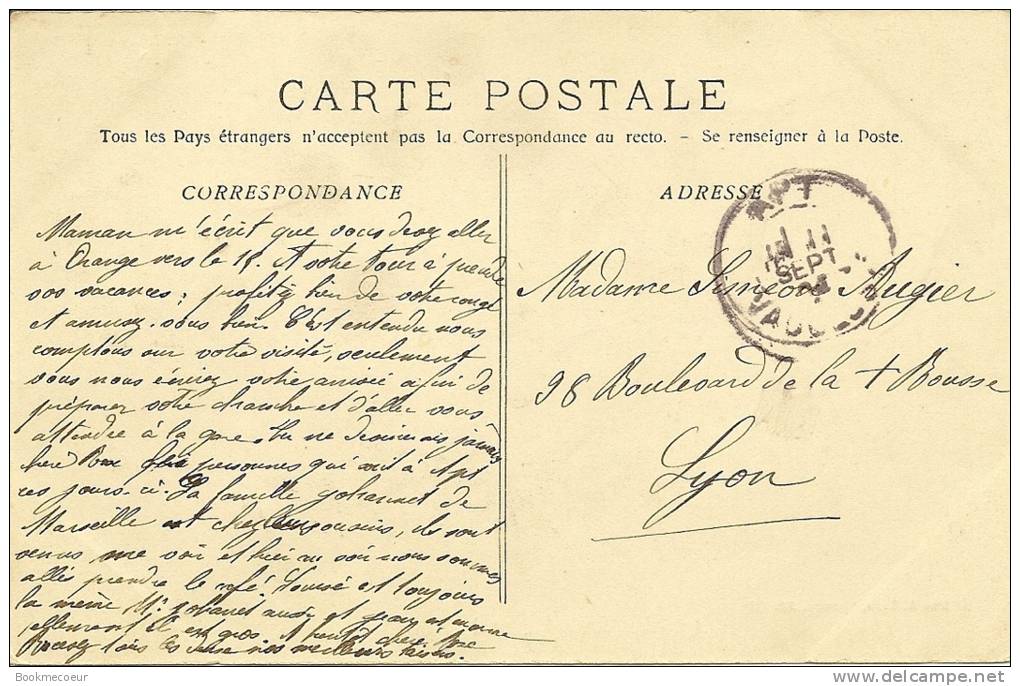 CARTE POSTALE
Tous les Pays étrangers n'acceptent pas la Correspondance au recto. - Se renseigner à la Poste.
CORRESPONDANCE
Maman m'écrit que vous devez aller
à Orange vers le 18. A votre tour à prendre
vos vacances; profitez bien de votre congé
et amusez-vous bien. C'est entendu nous
comptons sur votre visite, seulement
vous nous écrirez votre arrivée afin de
préparer votre chambre et d'aller vous
attendre à la gare. Tu ne devinerais jamais
chère les personnes qui sont à Apt
ces jours-ci. La famille Johannet de
Marseille est chez leurs cousins, ils sont
venus me voir et hier au soir nous sommes
allés prendre le café. est toujours
la même Mr Johannet aussi et
tellement il est gros. A bientôt chère
Recevez tous les deux nos meilleurs baisers.
ADRESSE
APT
11
SEPT
Madame Siméon Augier
98 Boulevard de la + Rousse
Lyon
Bookmecoeur
delcampe.net